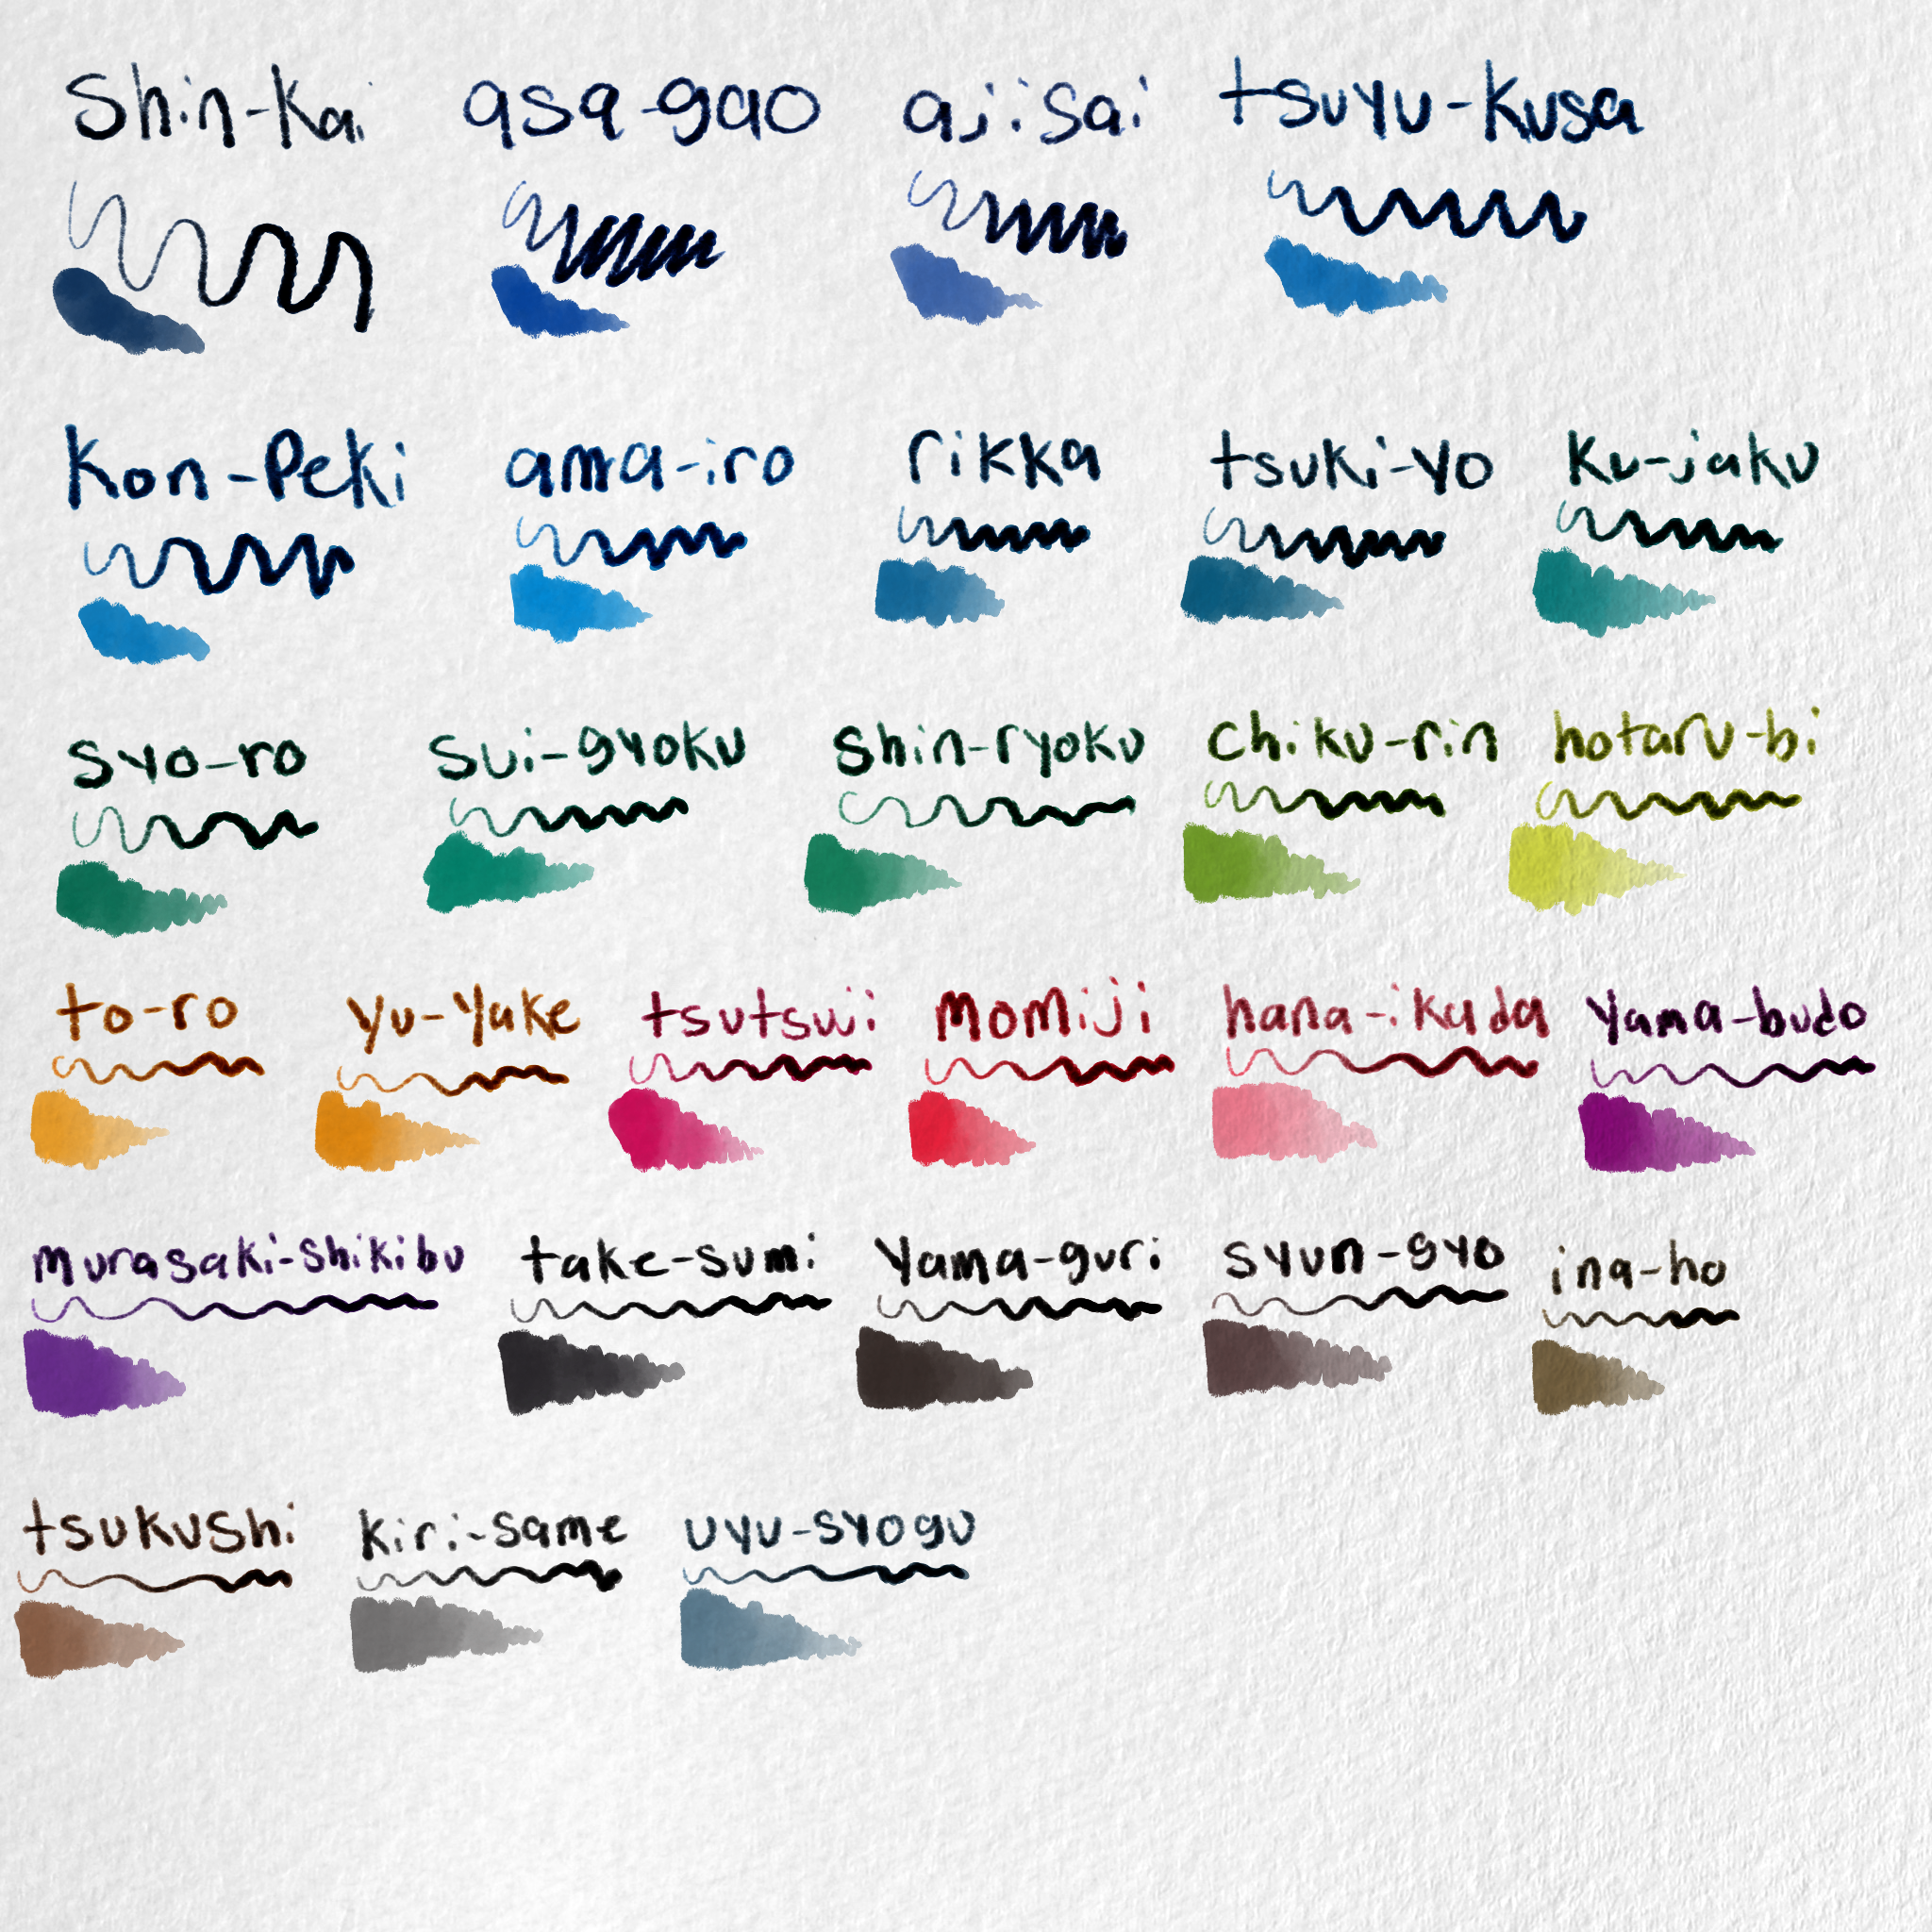 Shin-Kai asa-gao ajisai tsuyu-kusa
Kon-Peki ama-iro rikka tsuki-yo Ku-jaku
syo-ro Sui-gyoku Shin-ryoku chiku-rin hotaru-bi
to-ro yu-yake tsutsuji momiji hana-ikada yama-budo
murasaki-shikibu take-sumi yama-guri syun-gyo ina-ho
tsukushi kiri-same uyu-syogu